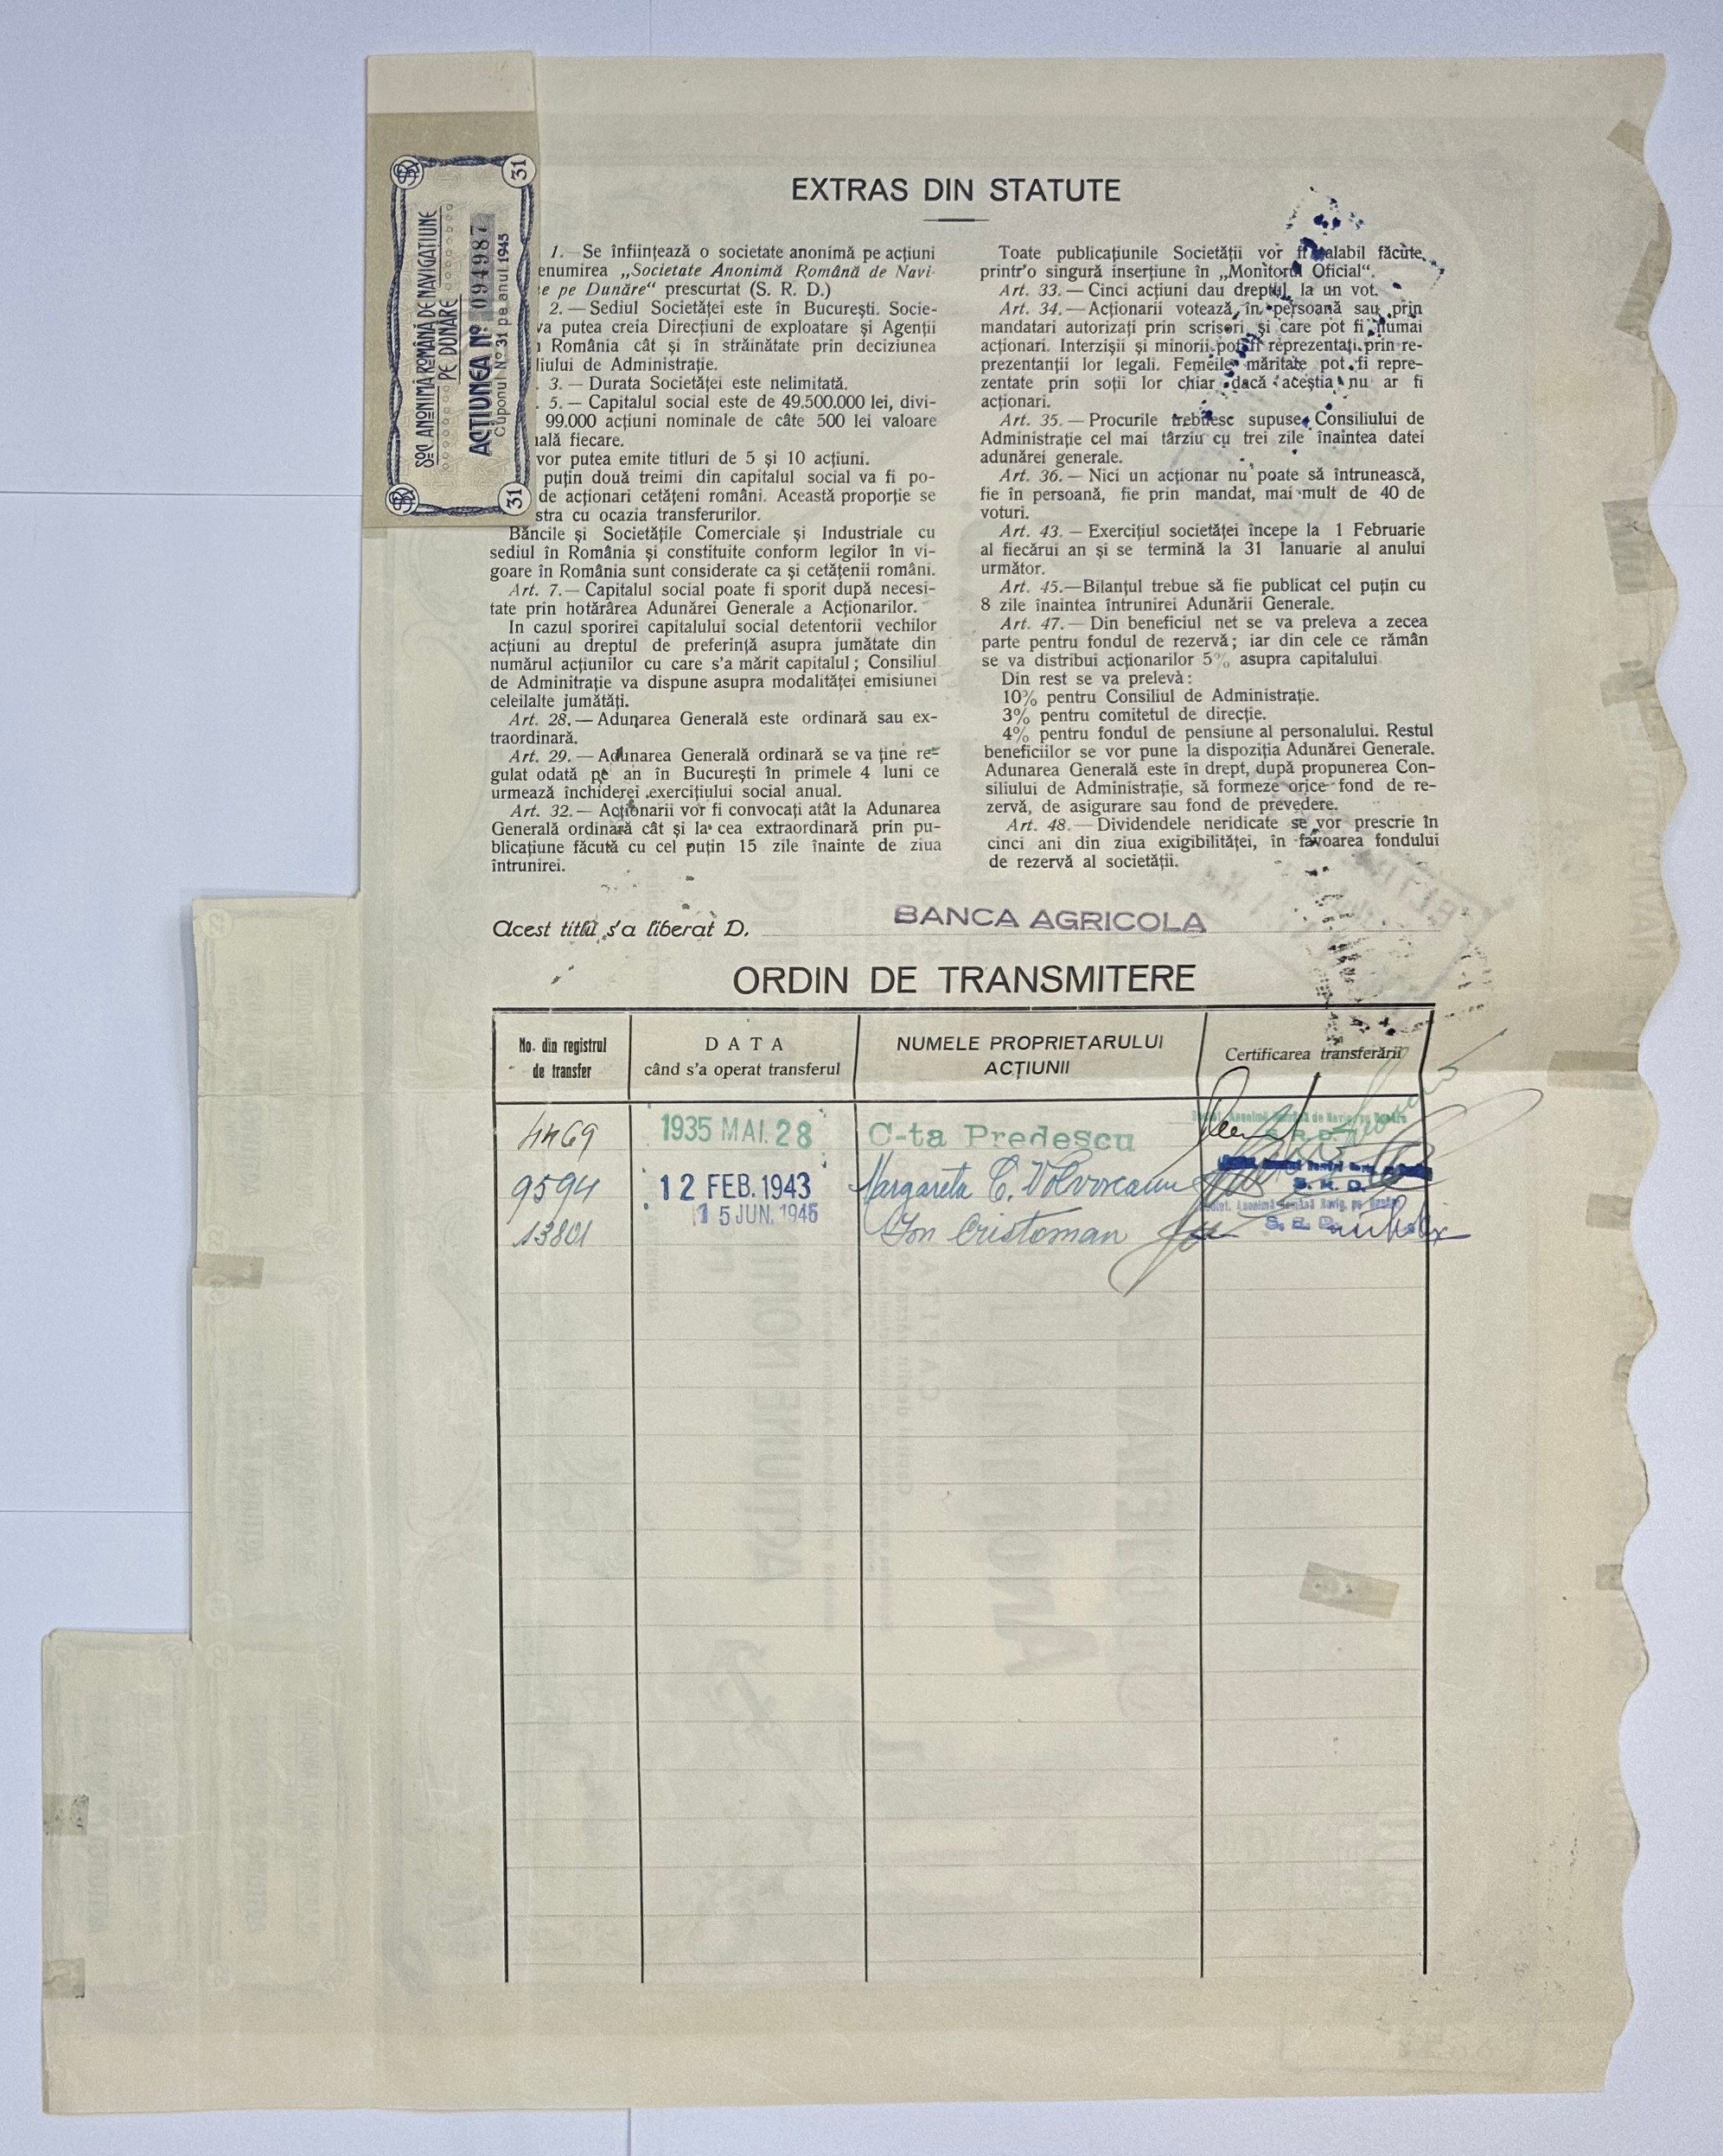 SOC. ANONIMĂ ROMÂNĂ DE NAVIGATIUNE
PE DUNĂRE
ACȚIUNEA Nº 094987
Cuponul Nº 31 pe anul 1945
31
31
EXTRAS DIN STATUTE
1.—Se înființează o societate anonimă pe acțiuni
enumirea „Societate Anonimă Română de Navi-
e pe Dunăre“ prescurtat (S. R. D.)
2.—Sediul Societăței este în București. Socie-
va putea creia Direcțiuni de exploatare și Agenții
România cât și în străinătate prin deciziunea
liului de Administrație.
3.— Durata Societăței este nelimitată.
5.— Capitalul social este de 49.500.000 lei, divi-
99.000 acțiuni nominale de câte 500 lei valoare
ală fiecare.
vor putea emite titluri de 5 și 10 acțiuni.
puțin două treimi din capitalul social va fi po-
de acționari cetățeni români. Această proporție se
stra cu ocazia transferurilor.
Băncile și Societățile Comerciale și Industriale cu
sediul în România și constituite conform legilor în vi-
goare în România sunt considerate ca și cetățenii români.
Art. 7.— Capitalul social poate fi sporit după necesi-
tate prin hotărârea Adunărei Generale a Acționarilor.
In cazul sporirei capitalului social detentorii vechilor
acțiuni au dreptul de preferință asupra jumătate din
numărul acțiunilor cu care s'a mărit capitalul; Consiliul
de Adminitrație va dispune asupra modalităței emisiunei
celeilalte jumătăți.
Art. 28.— Adunarea Generală este ordinară sau ex-
traordinară.
Art. 29.— Adunarea Generală ordinară se va ține re-
gulat odată pe an în București în primele 4 luni ce
urmează închiderei exercițiului social anual.
Art. 32.— Acționarii vor fi convocați atât la Adunarea
Generală ordinară cât și la cea extraordinară prin pu-
blicațiune făcută cu cel puțin 15 zile înainte de ziua
întrunirei.
Toate publicațiunile Societății vor fi valabil făcute
printr'o singură inserțiune în „Monitorul Oficial“.
Art. 33.— Cinci acțiuni dau dreptul la un vot.
Art. 34.— Acționarii votează în persoană sau prin
mandatari autorizați prin scrisori și care pot fi numai
acționari. Interzișii și minorii pot fi reprezentați prin re-
prezentanții lor legali. Femeile măritate pot fi repre-
zentate prin soții lor chiar dacă aceștia nu ar fi
acționari.
Art. 35.— Procurile trebuesc supuse Consiliului de
Administrație cel mai târziu cu trei zile înaintea datei
adunărei generale.
Art. 36.— Nici un acționar nu poate să întrunească,
fie în persoană, fie prin mandat, mai mult de 40 de
voturi.
Art. 43.— Exercițiul societăței începe la 1 Februarie
al fiecărui an și se termină la 31 Ianuarie al anului
următor.
Art. 45.—Bilanțul trebue să fie publicat cel puțin cu
8 zile înaintea întrunirei Adunării Generale.
Art. 47.— Din beneficiul net se va preleva a zecea
parte pentru fondul de rezervă; iar din cele ce rămân
se va distribui acționarilor 5% asupra capitalului
Din rest se va prelevà:
10% pentru Consiliul de Administrație.
3% pentru comitetul de direcție.
4% pentru fondul de pensiune al personalului. Restul
beneficiilor se vor pune la dispoziția Adunărei Generale.
Adunarea Generală este în drept, după propunerea Con-
siliului de Administrație, să formeze orice fond de re-
zervă, de asigurare sau fond de prevedere.
Art. 48.— Dividendele neridicate se vor prescrie în
cinci ani din ziua exigibilităței, în favoarea fondului
de rezervă al societății.
Acest titlu s'a liberat D. BANCA AGRICOLA
ORDIN DE TRANSMITERE
No. din registrul
de transfer
DATA
când s'a operat transferul
NUMELE PROPRIETARULUI
ACȚIUNII
Certificarea transferării
4469 1935 MAI. 28 C-ta Predescu
9594 12 FEB. 1943 Margareta C.
S. R. D.
13801 15 JUN. 1945 Ion Cristoman
S. R. D.